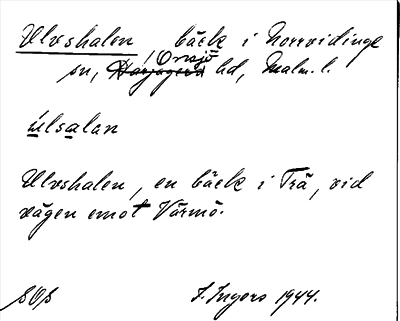 Ulvshalen bäck i Norrvidinge
Onsjö
sn, Harjagers hd, Malm. l.
úlsalan
Ulvshalen, en bäck i Trä, vid
vägen emot Värmö.
SOB I. Ingers 1944.